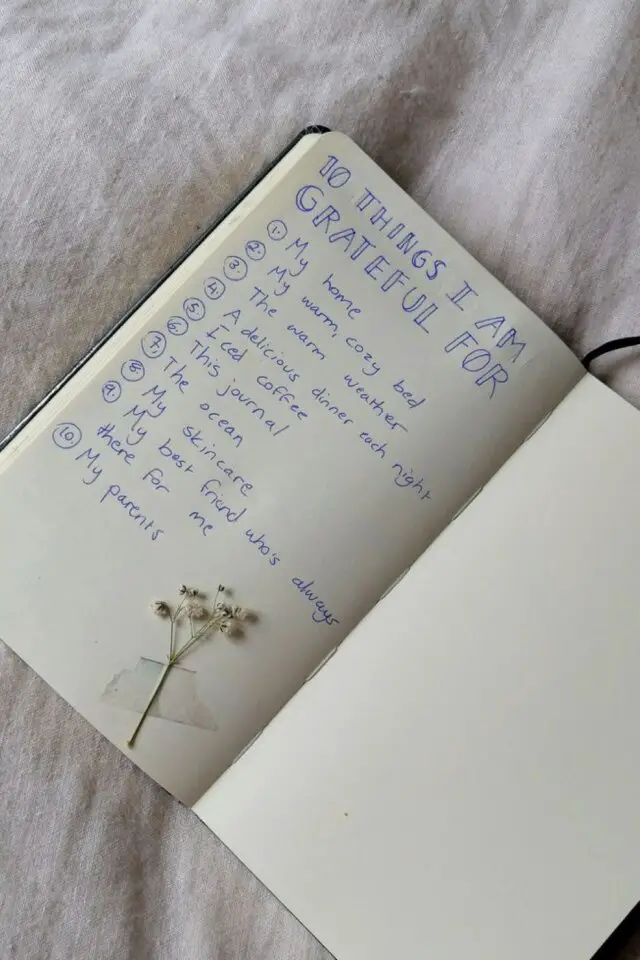 10 THINGS I AM
GRATEFUL FOR
1. My home
2. My warm, cozy bed
3. The warm weather
4. A delicious dinner each night
5. Iced coffee
6. This journal
7. The ocean
8. My skincare
9. My best friend who's always
there for me
10. My parents